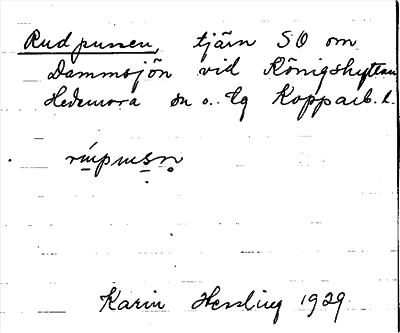 Rudpussen, tjärn SO om
Dammsjön vid Königshyttan
Hedemora sn o. lg Kopparb. l.
Karin Hessling 1929